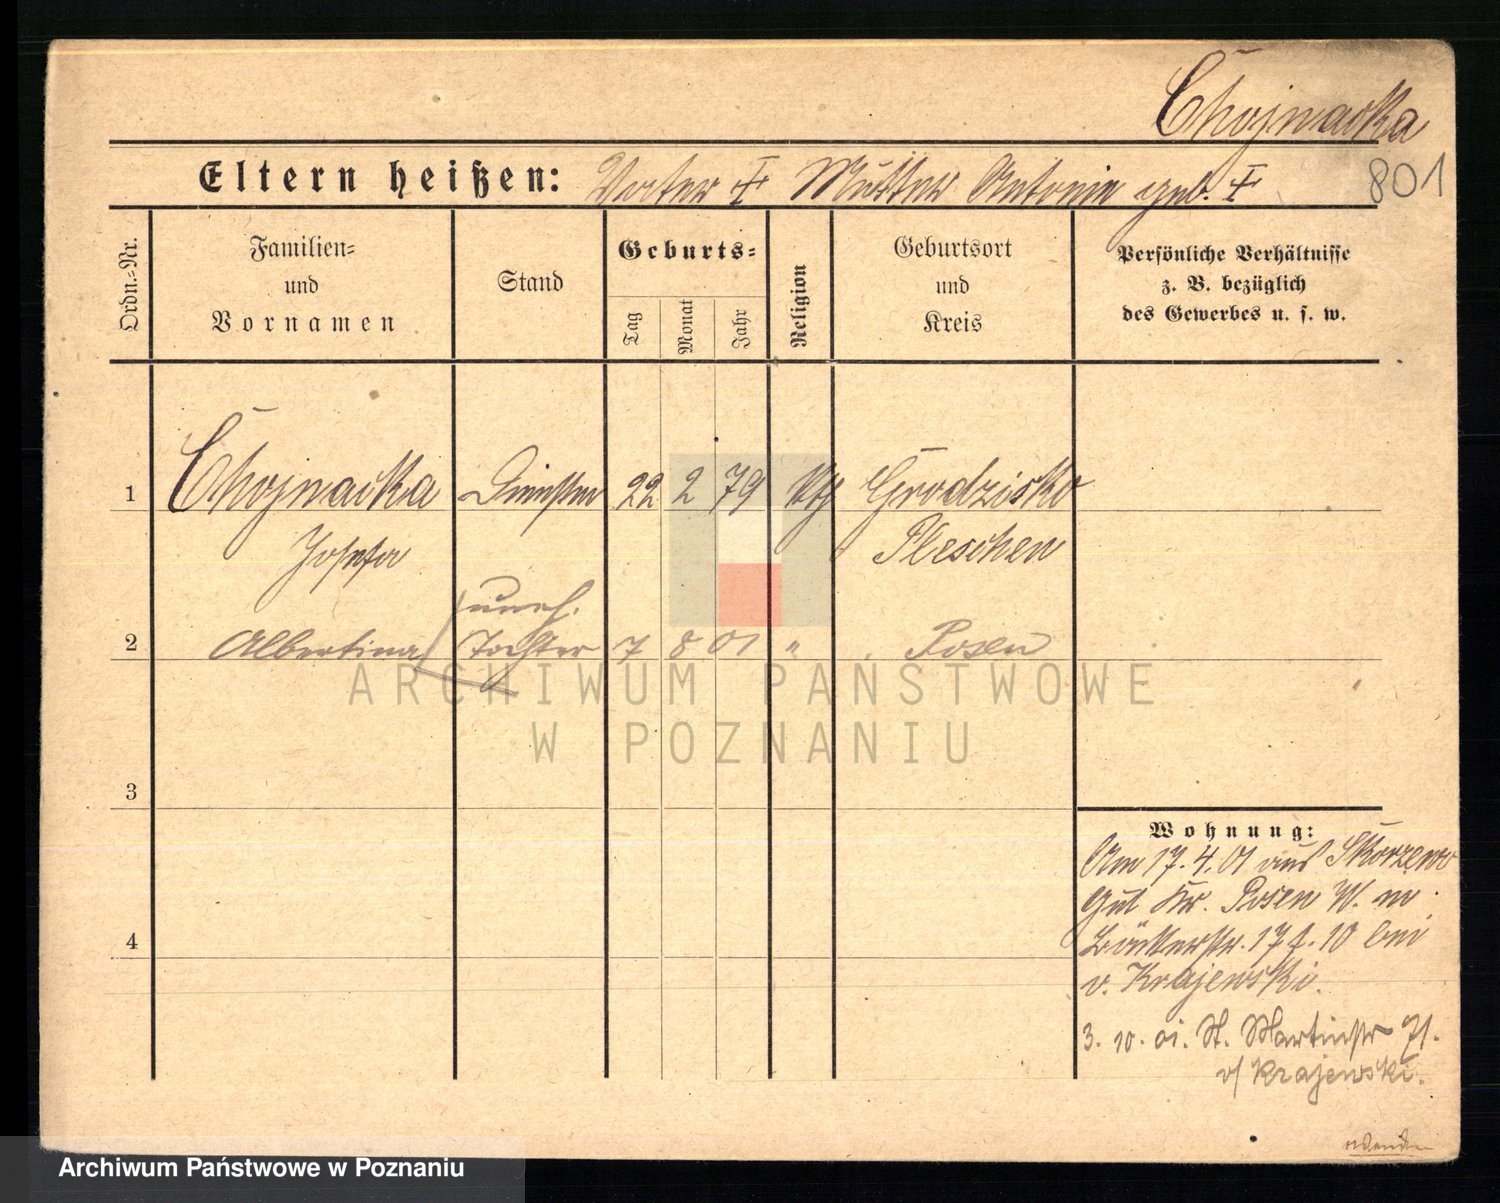 Chojnacka
Eltern heißen: Vater † Mutter Antonie geb. †
801
Ordn.-Nr.
Familien-
und
Vornamen
Stand
Geburts-
Tag
Monat
Jahr
Religion
Geburtsort
und
Kreis
Persönliche Verhältnisse
z. B. bezüglich
des Gewerbes u. s. w.
1 Chojnacka 22 2 79 kth Grodzisko
Josefa Pleschen
uneh.
2 Albertina Tochter 7 8 01 " Posen
3
4
Wohnung:
Am 17.4.01 aus Skorzewo
Gut Kr. Posen W. m
Bäckerstr. 17 f. 10 bei
v. Krajewski.
3. 10. 01. St. Martinstr 71.
v/ Krajewski.
Wenden
ARCHIWUM PAŃSTWOWE
W POZNANIU
Archiwum Państwowe w Poznaniu